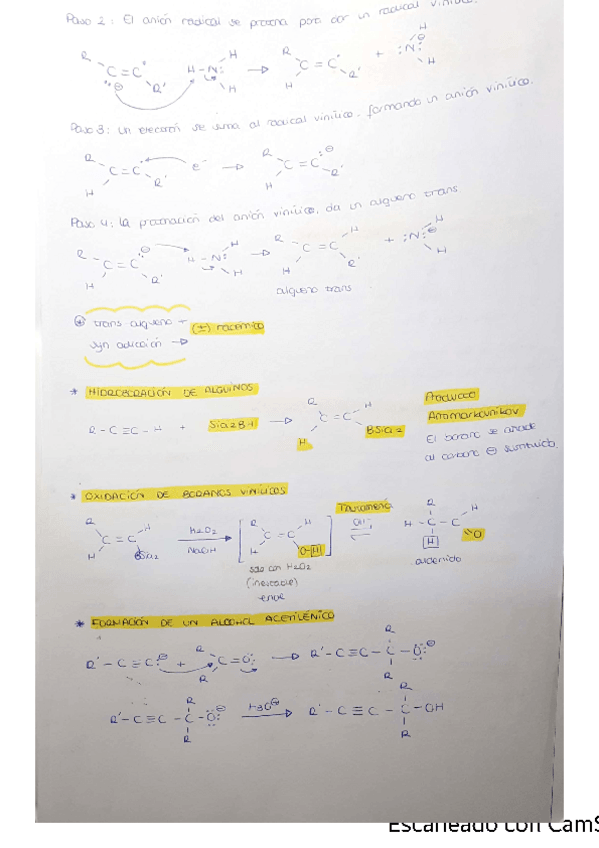 Paso 2: El anión radical se protona para dar un radical vinílico.
R C=C R' H-N: H H → R H C=C R' + :N: H H
Paso 3: Un electrón se suma al radical vinílico, formando un anión vinílico.
R H C=C R' e⁻ → R H C=C: ⊖ R'
Paso 4: La protonación del anión vinílico, da un alqueno trans
R H C=C ⊖ R' H-N: H H → R H C=C H R' + :N: ⊖ H H
alqueno trans
⊛ trans alqueno + (±) racémico
syn adición →
* HIDROBORACIÓN DE ALQUINOS
R-C≡C-H + Sia2B-H → R H C=C H BSia2
Producto
Antimarkovnikov
El borano se añade
al carbono ⊖ sustituido.
* OXIDACIÓN DE BORANOS VINÍLICOS
R H C=C H BSia2 H2O2 NaOH → [ R H C=C H O-H ] Tautomería OH⁻ ⇌ H-C-C R H H =O
solo con H2O2
(inestable)
enol
aldehído
* FORMACIÓN DE UN ALCOHOL ACETILÉNICO
R'-C≡C:⊖ + R R C=O: → R'-C≡C-C-O:⊖ R R
R'-C≡C-C-O:⊖ R R H3O⊕ → R'-C≡C-C-OH R R
Escaneado con CamS